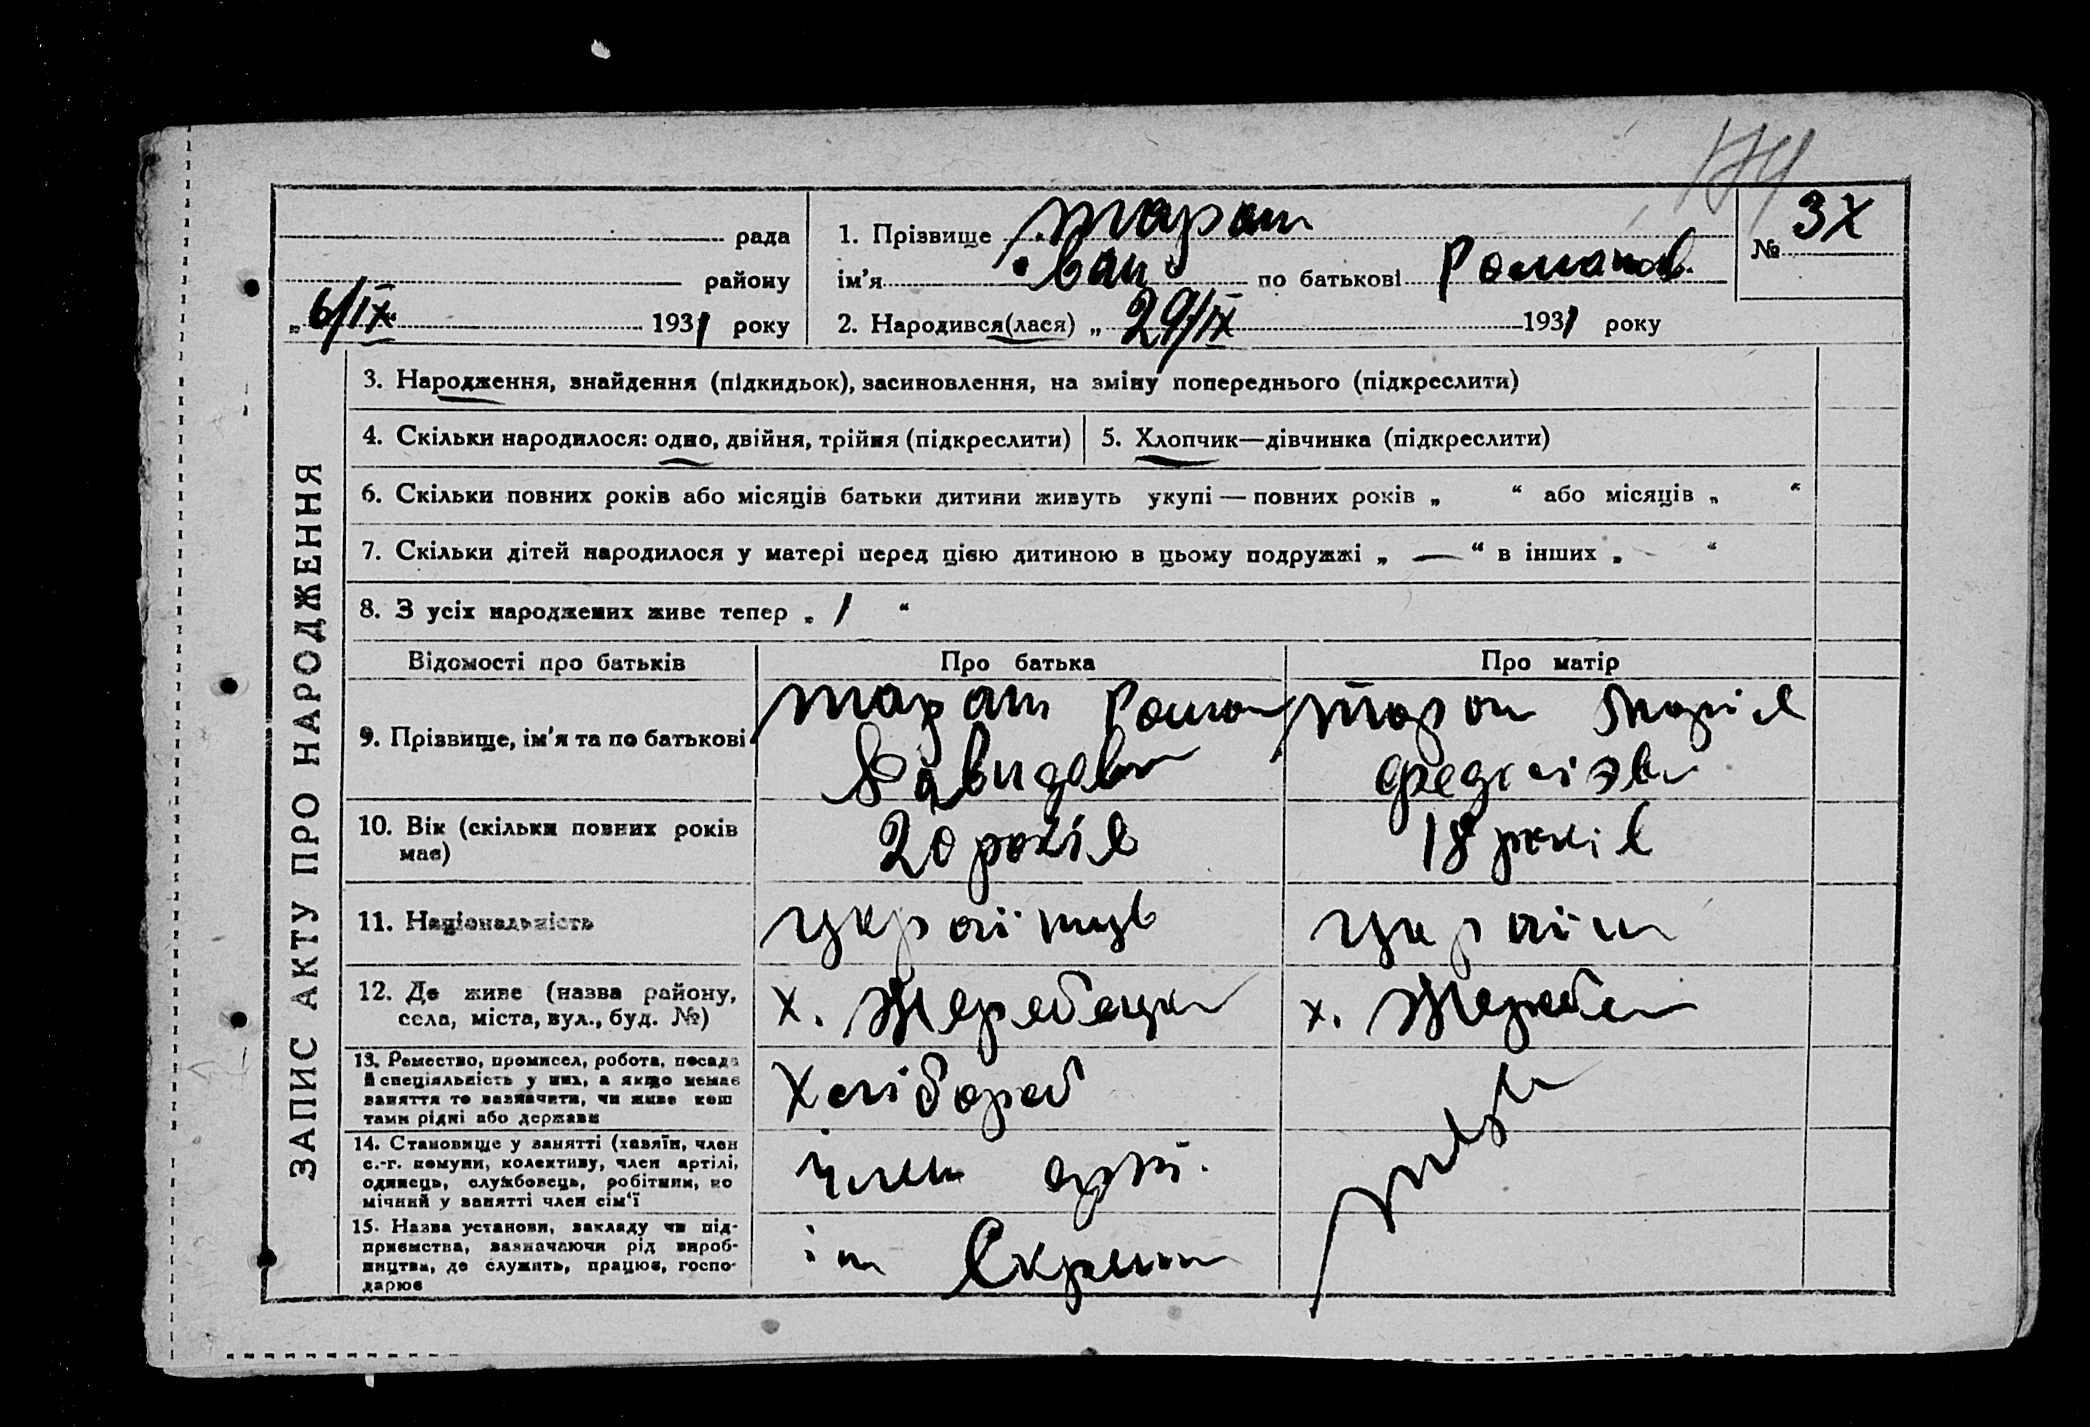 174
рада
району
„6/ІХ“ 1931 року
1. Прізвище Таран
ім’я Іван по батькові Романов.
2. Народився(лася) „29/ІХ 1931 року
№ 3X
ЗАПИС АКТУ ПРО НАРОДЖЕННЯ
3. Народження, знайдення (підкидьок), засиновлення, на зміну попереднього (підкреслити)
4. Скільки народилося: одно, двійня, трійня (підкреслити)
5. Хлопчик—дівчинка (підкреслити)
6. Скільки повних років або місяців батьки дитини живуть укупі — повних років „ “ або місяців „ “
7. Скільки дітей народилося у матері перед цією дитиною в цьому подружжі „ — “ в інших „ “
8. З усіх народжених живе тепер „ 1 “
Відомості про батьків
Про батька
Про матір
9. Прізвище, ім’я та по батькові
Таран Роман
Давидов
Таран Марія
10. Вік (скільки повних років
має)
20 років
18 років
11. Національність
українець
україн
12. Де живе (назва району,
села, міста, вул., буд. №)
х. Жеребецьк
х. Жеребе
13. Ремество, промисел, робота, посада
й спеціяльність у них, а якщо немає
заняття то зазначити, чи живе кош
тами рідні або держави
Хлібороб
14. Становище у занятті (хазяїн, член
с.-г. комуни, колективу, член артілі,
одинець, службовець, робітник, по
мічний у занятті член сім‘ї
член арт.
15. Назва установи, закладу чи під-
приємства, зазначаючи рід вироб-
ництва, де служить, працює, госпо-
дарює
ім Скрипн